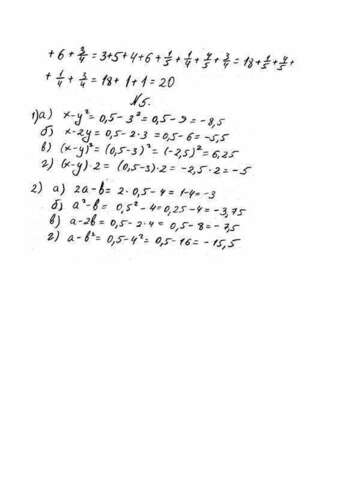 + 6 + 3/4 = 3+5+4+6 + 1/5 + 1/4 + 4/5 + 3/4 = 18 + 1/5 + 4/5 +
+ 1/4 + 3/4 = 18 + 1 + 1 = 20
N5.
1) а) x-y² = 0,5 - 3² = 0,5 - 9 = -8,5
б) x-2y = 0,5 - 2·3 = 0,5 - 6 = -5,5
в) (x-y)² = (0,5-3)² = (-2,5)² = 6,25
г) (x-y)·2 = (0,5-3)·2 = -2,5·2 = -5
2) а) 2a-b = 2·0,5-4 = 1-4 = -3
б) a²-b = 0,5²-4 = 0,25-4 = -3,75
в) a-2b = 0,5-2·4 = 0,5-8 = -7,5
г) a-b² = 0,5-4² = 0,5-16 = -15,5